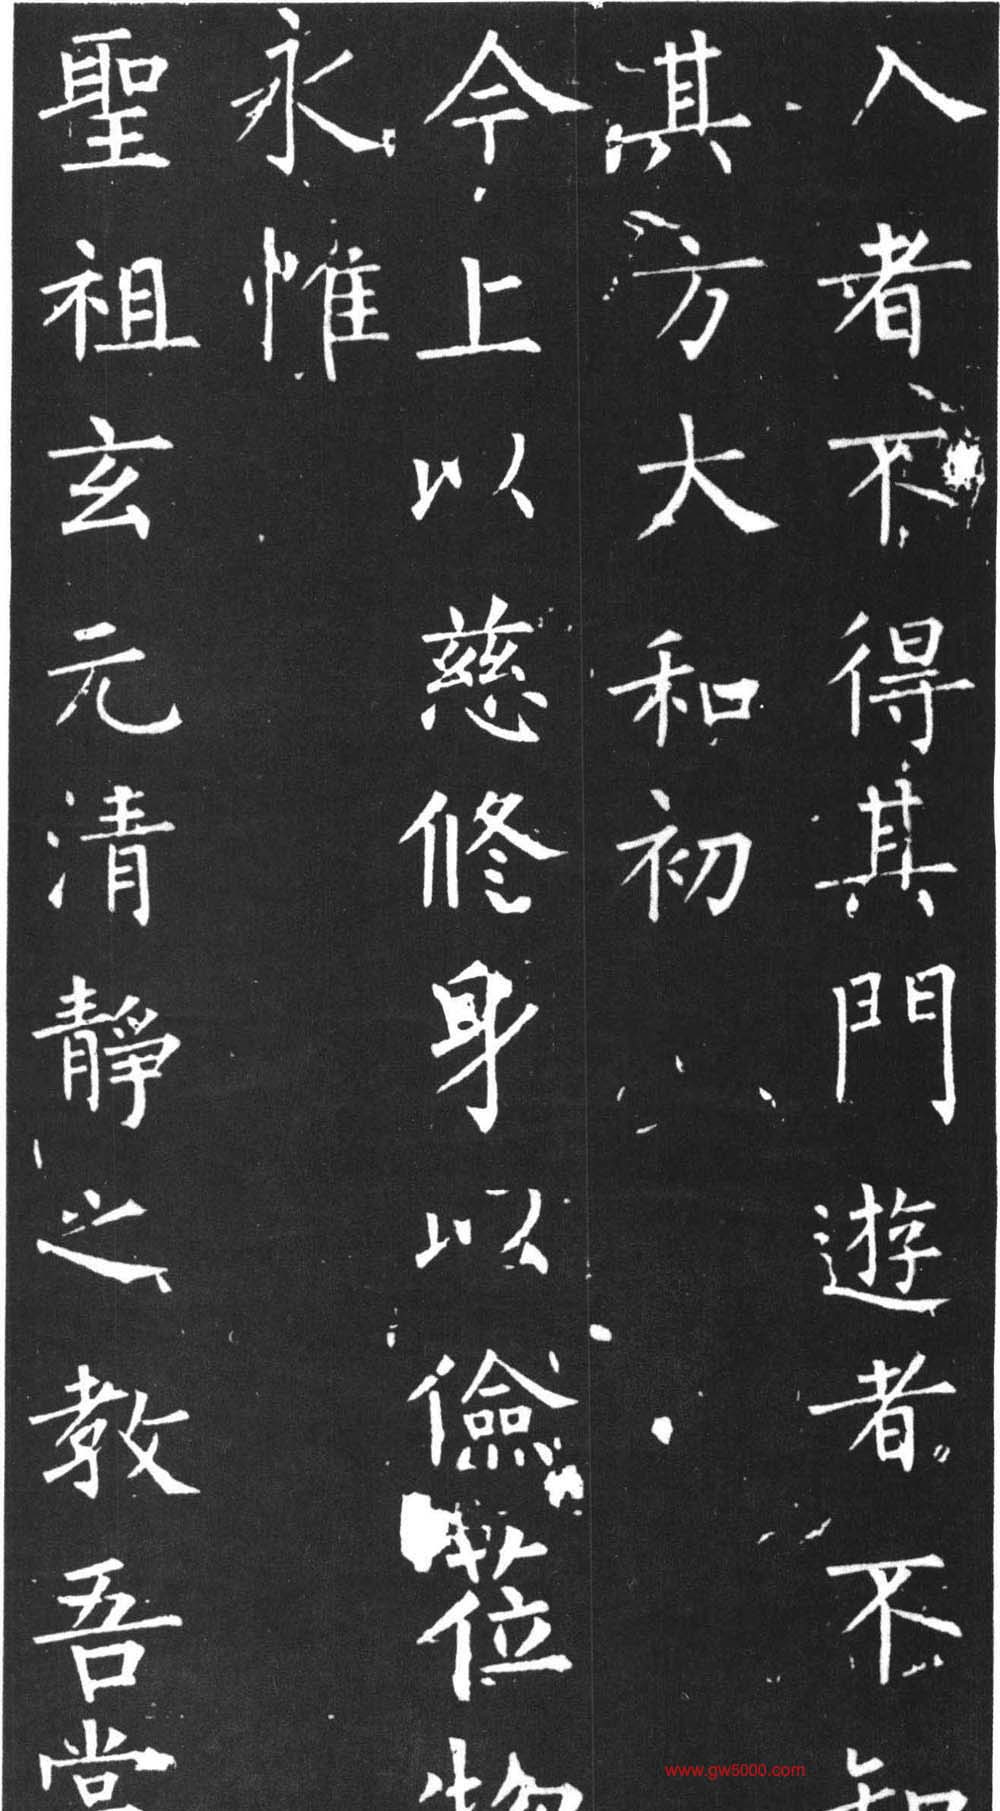 入者不得其門遊者不知
其方大和初
今上以慈修身以儉莅物
永惟
聖祖玄元清靜之教吾當
www.gw5000.com